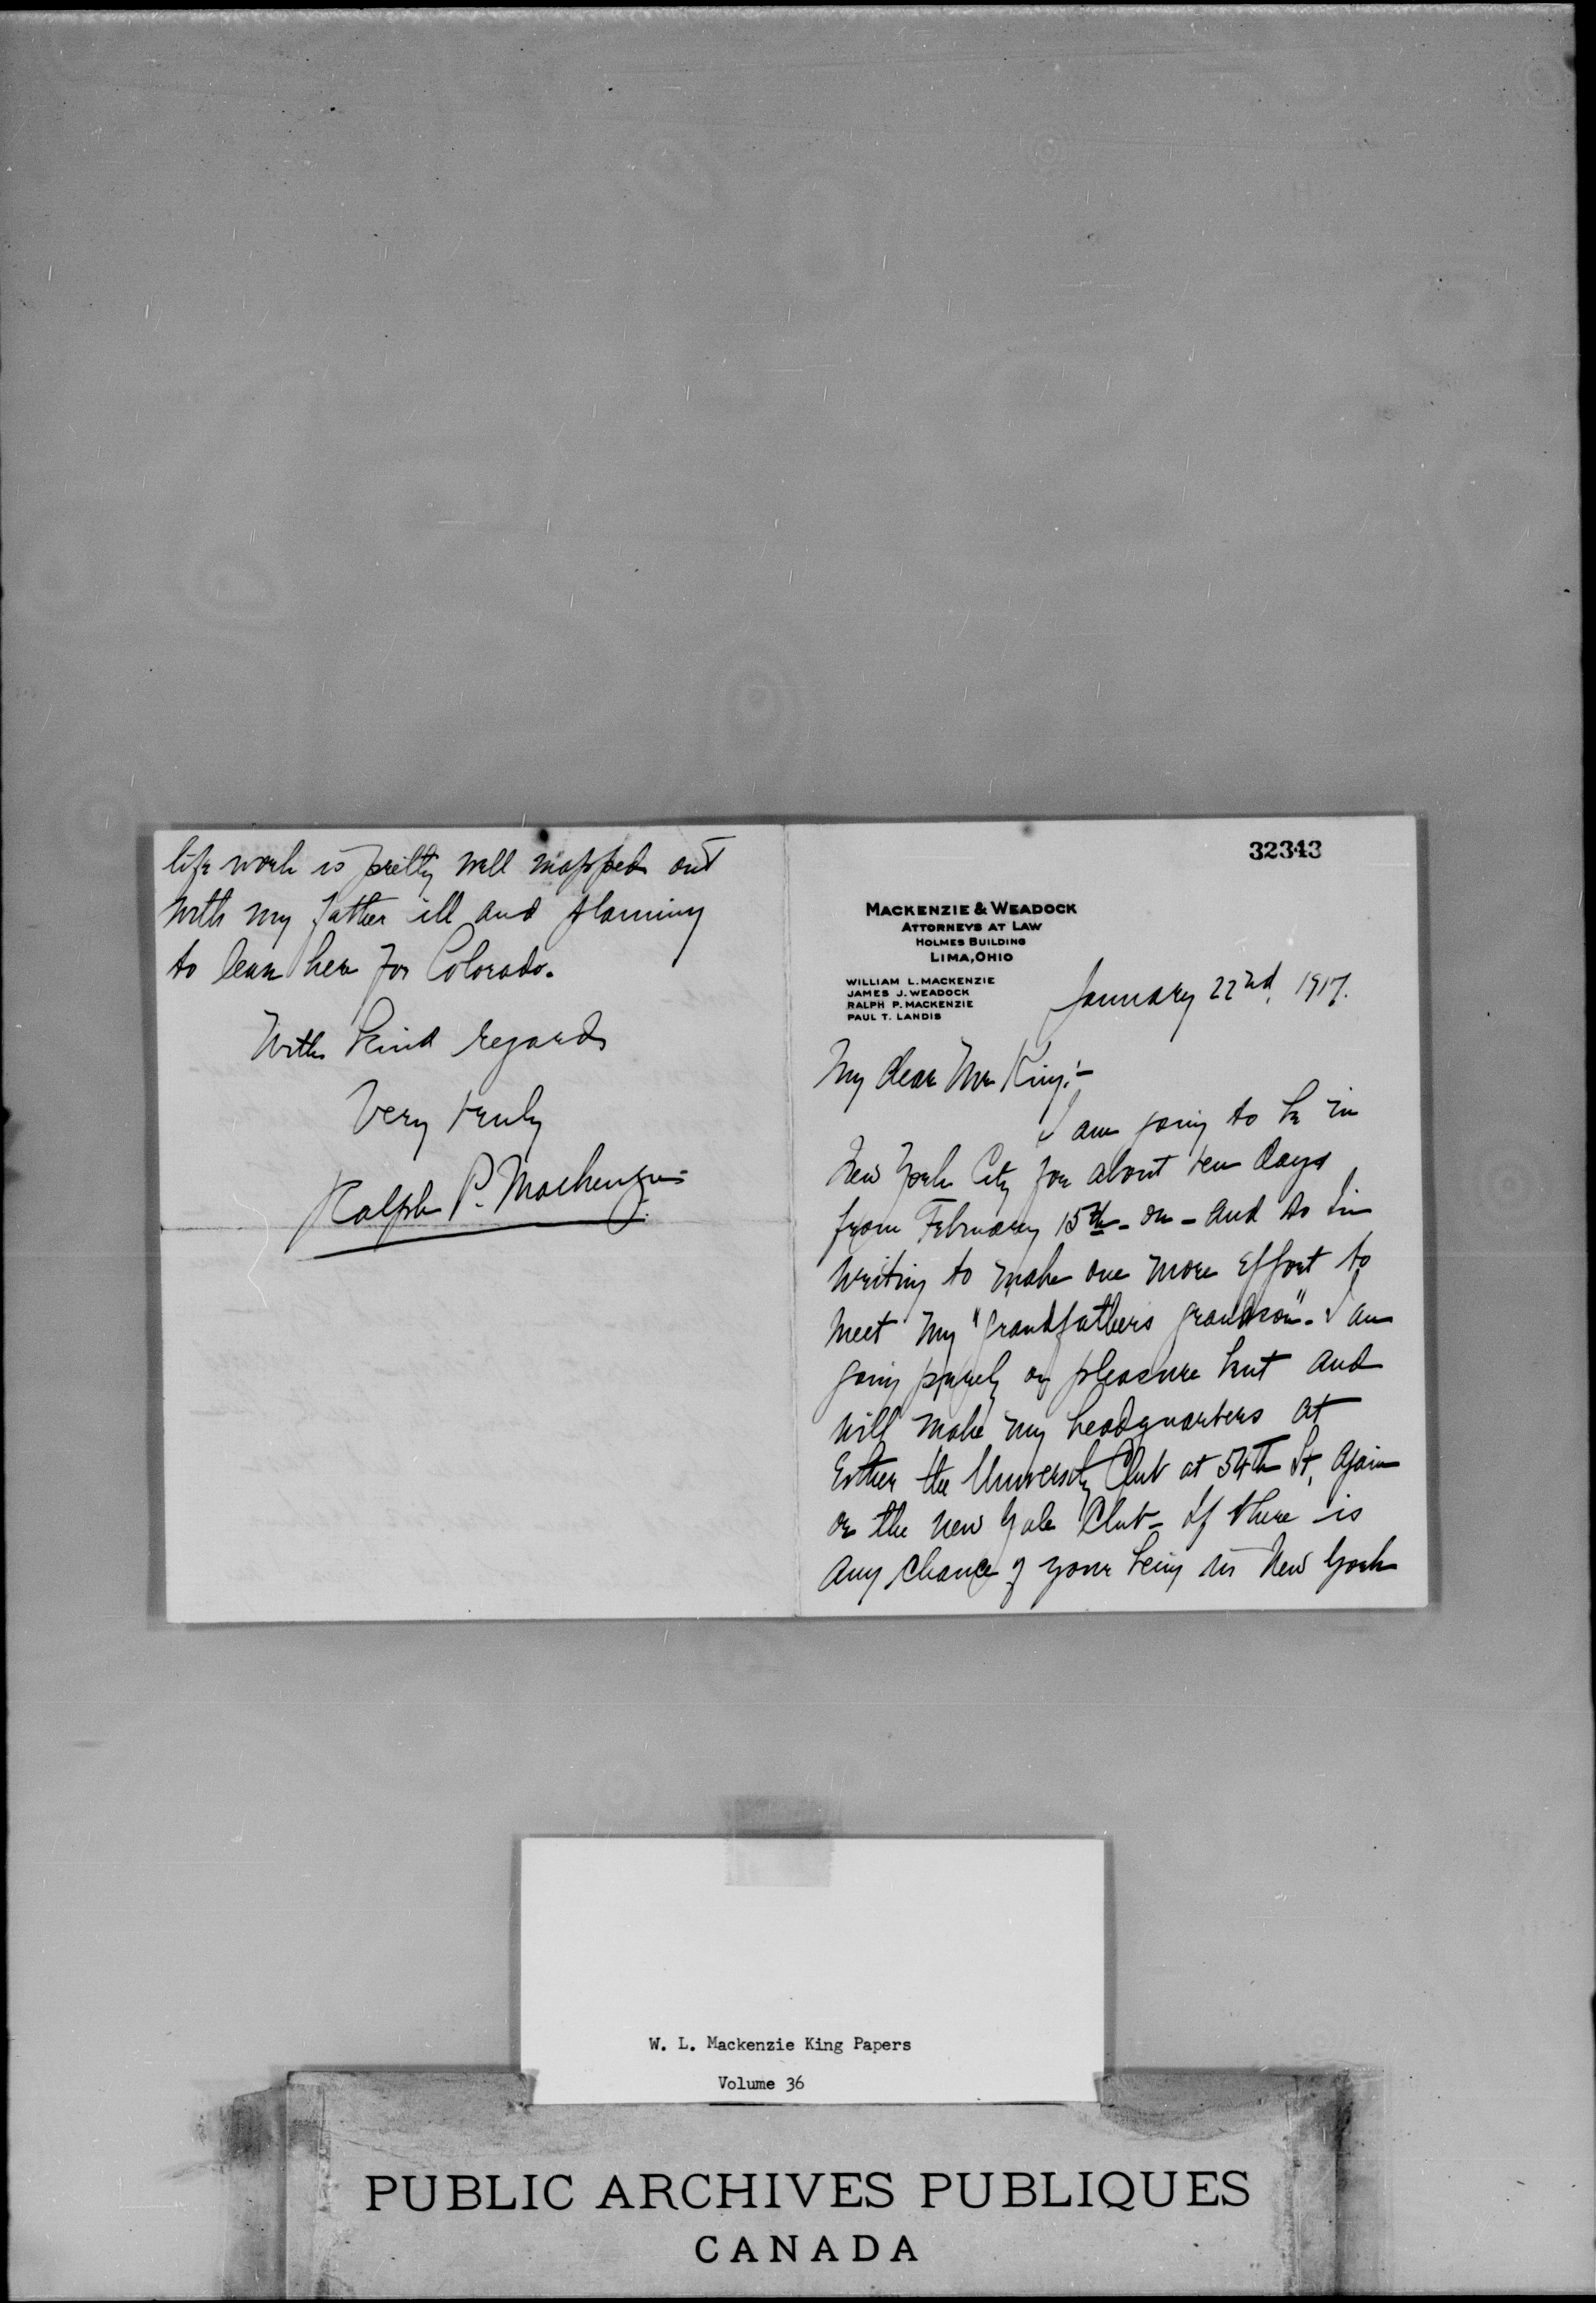 life work is pretty well mapped out
with my father ill and planning
to leave here for Colorado.
With kind regards
Very truly
Ralph P. Mackenzie
32343
MACKENZIE & WEADOCK
ATTORNEYS AT LAW
HOLMES BUILDING
LIMA, OHIO
WILLIAM L. MACKENZIE
JAMES J. WEADOCK
RALPH P. MACKENZIE
PAUL T. LANDIS
January 22nd, 1917.
My dear Mr King:-
I am going to be in
New York City for about ten days
from February 15th - on - and so I'm
writing to make one more effort to
meet my "grandfathers grandson". I am
going purely on pleasure bent and
will make my headquarters at
Either the University Club at 54th St, again
or the new Yale Club - If there is
any chance of your being in New York
W. L. Mackenzie King Papers
Volume 36
PUBLIC ARCHIVES PUBLIQUES
CANADA